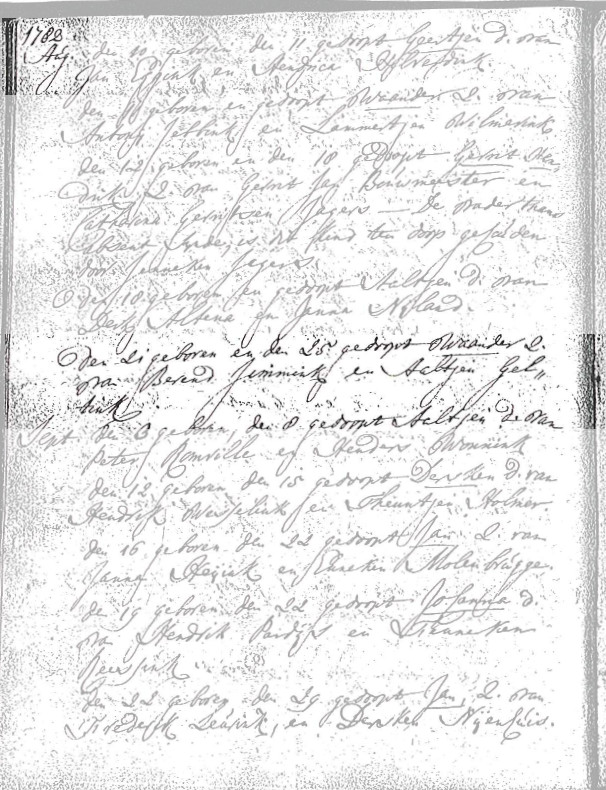 1788
Aug. den 10 geboren den 11 gedoopt Geertjen d. van
Jan Eggink en Hendrica
den geboren en gedoopt Waander Z. van
Antony Jebbink en Lammertjen Wilmerink
den 12 geboren en den 18 gedoopt Gerrit Hen
drik Z. van Gerrit Jan Bouwmeister en
Catharina Gerritsen Jegers — De vader thans
absent zynde, is dit kind ten doop gehouden
door Jenneken Jegers
den 18 geboren en gedoopt Aaltjen d. van
Derk Altena en Janna Nyland.
Den 21 geboren en den 25 gedoopt Waander Z.
van Berend Jimmink en Aaltjen Gel„
tink
Sept. den 6 geboren, den 8 gedoopt Aaltjen d. van
Peter Romville en Henders Wonnink
den 12 geboren den 15 gedoopt Dersken d. van
Hendrik Wesselink en Theuntjen Holmer.
den 16 geboren den 22 gedoopt Jan Z. van
Jannes Hegink en Enneken Molenbrugge.
den 19 geboren den 22 gedoopt Johanna d.
van Hendrik Pardys en Teunneken
Reessink
den 22 geboren den 29 gedoopt Jan, Z. van
Frederik Leusink, en Dersken Nyenhuis.